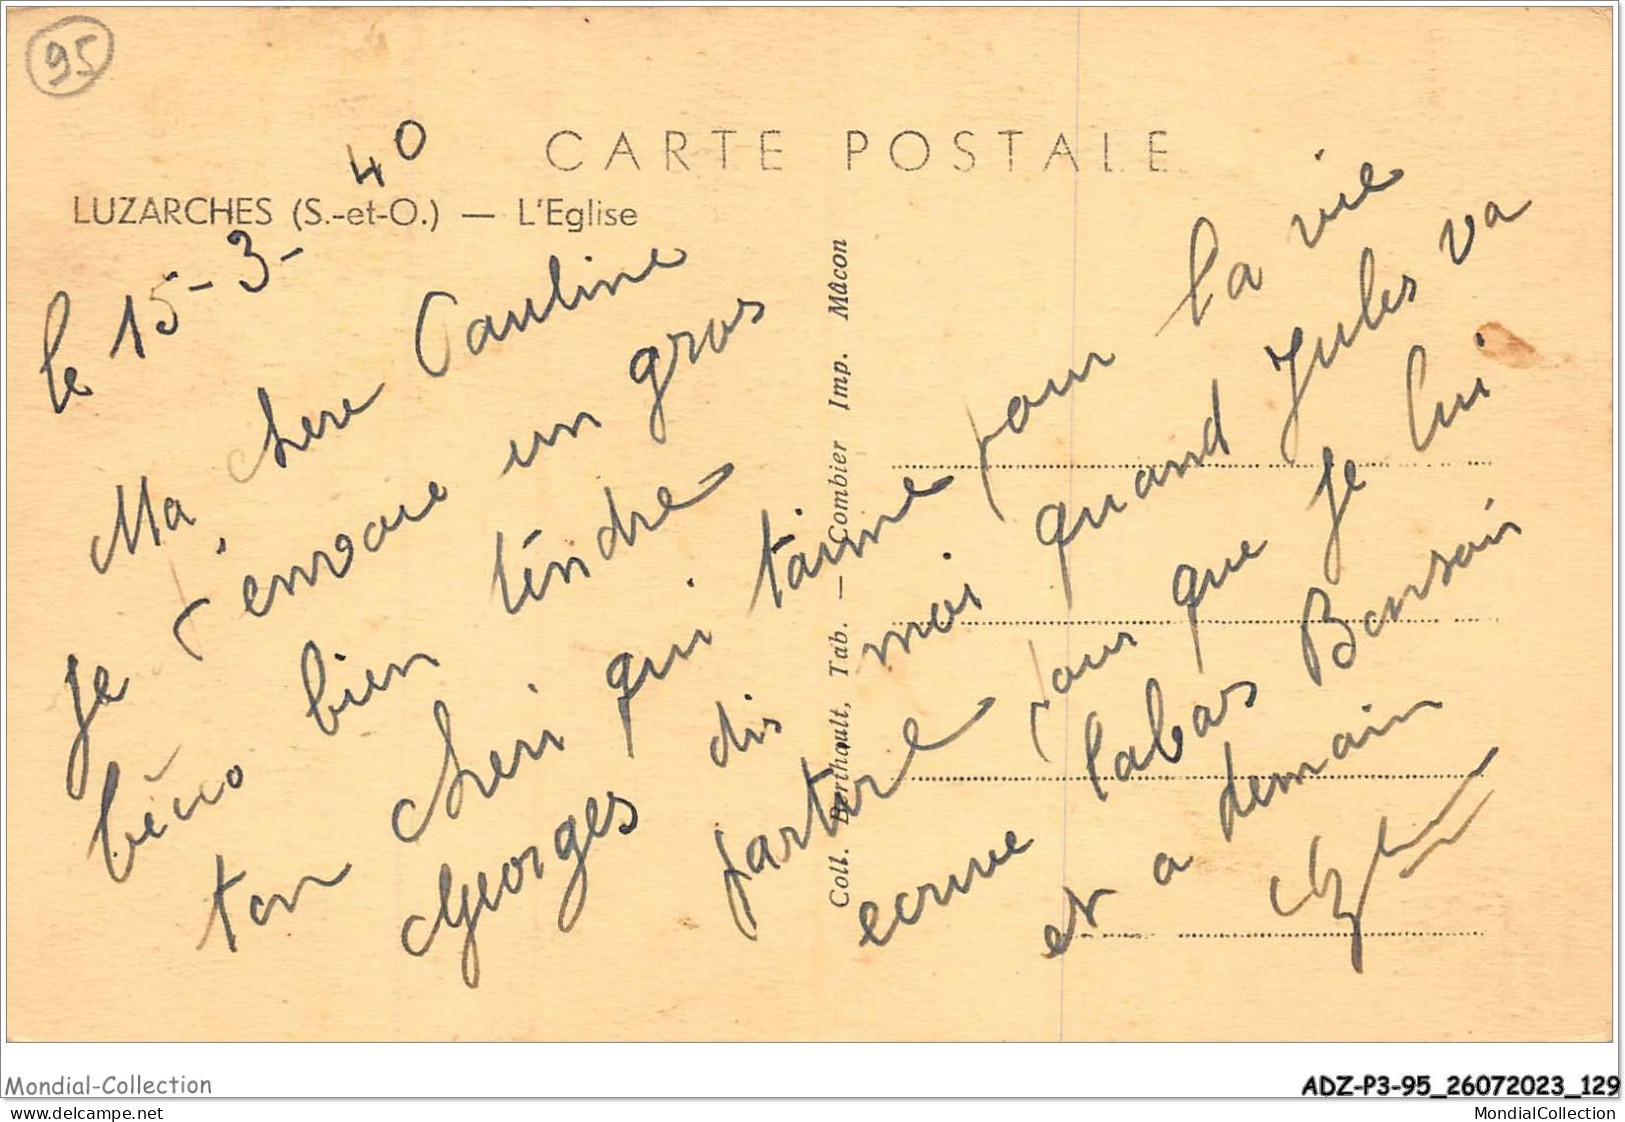 95
CARTE POSTALE
LUZARCHES (S.-et-O.) — L'Eglise
le 15-3-40
Ma chere Pauline
Je t'envoie un gros
béco bien tendre
ton cheri qui taime pour la vie
Georges dis moi quand Jules va
partire pour que je lui
ecrive labas Bonsoir
et a demain
Coll. Berthault, Tab. — Combier Imp. Mâcon
Mondial-Collection
ADZ-P3-95_26072023_129
www.delcampe.net
MondialCollection